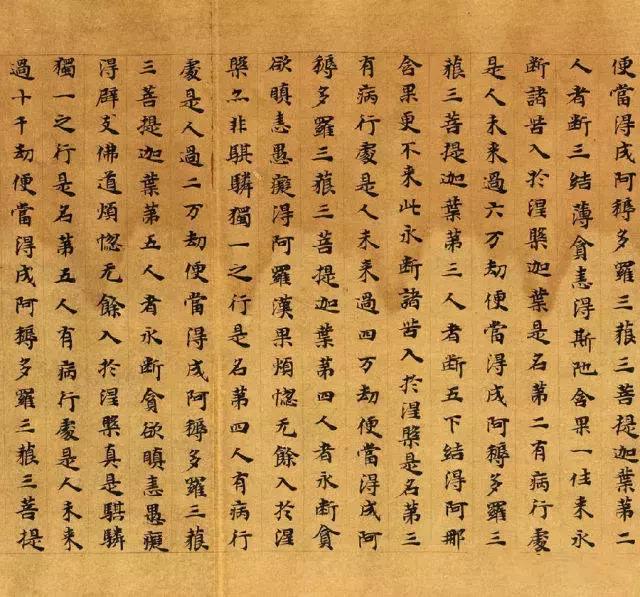 便當得成阿耨多羅三藐三菩提迦葉第二
人者断三結薄貪恚得斯陁含果一往来永
断諸苦入於涅槃迦葉是名第二有病行處
是人未来過六万劫便當得成阿耨多羅三
藐三菩提迦葉第三人者断五下結得阿那
含果更不来此永断諸苦入於涅槃是名第三
有病行處是人未来過四万劫便當得成阿
耨多羅三藐三菩提迦葉第四人者永断貪
欲瞋恚愚癡得阿羅漢果煩惚无餘入於涅
槃亦非騏驎獨一之行是名第四人有病行
處是人過二万劫便當得成阿耨多羅三藐
三菩提迦葉第五人者永断貪欲瞋恚愚癡
得辟支佛道煩惚无餘入於涅槃真是騏驎
獨一之行是名第五人有病行處是人未来
過十千劫便當得成阿耨多羅三藐三菩提